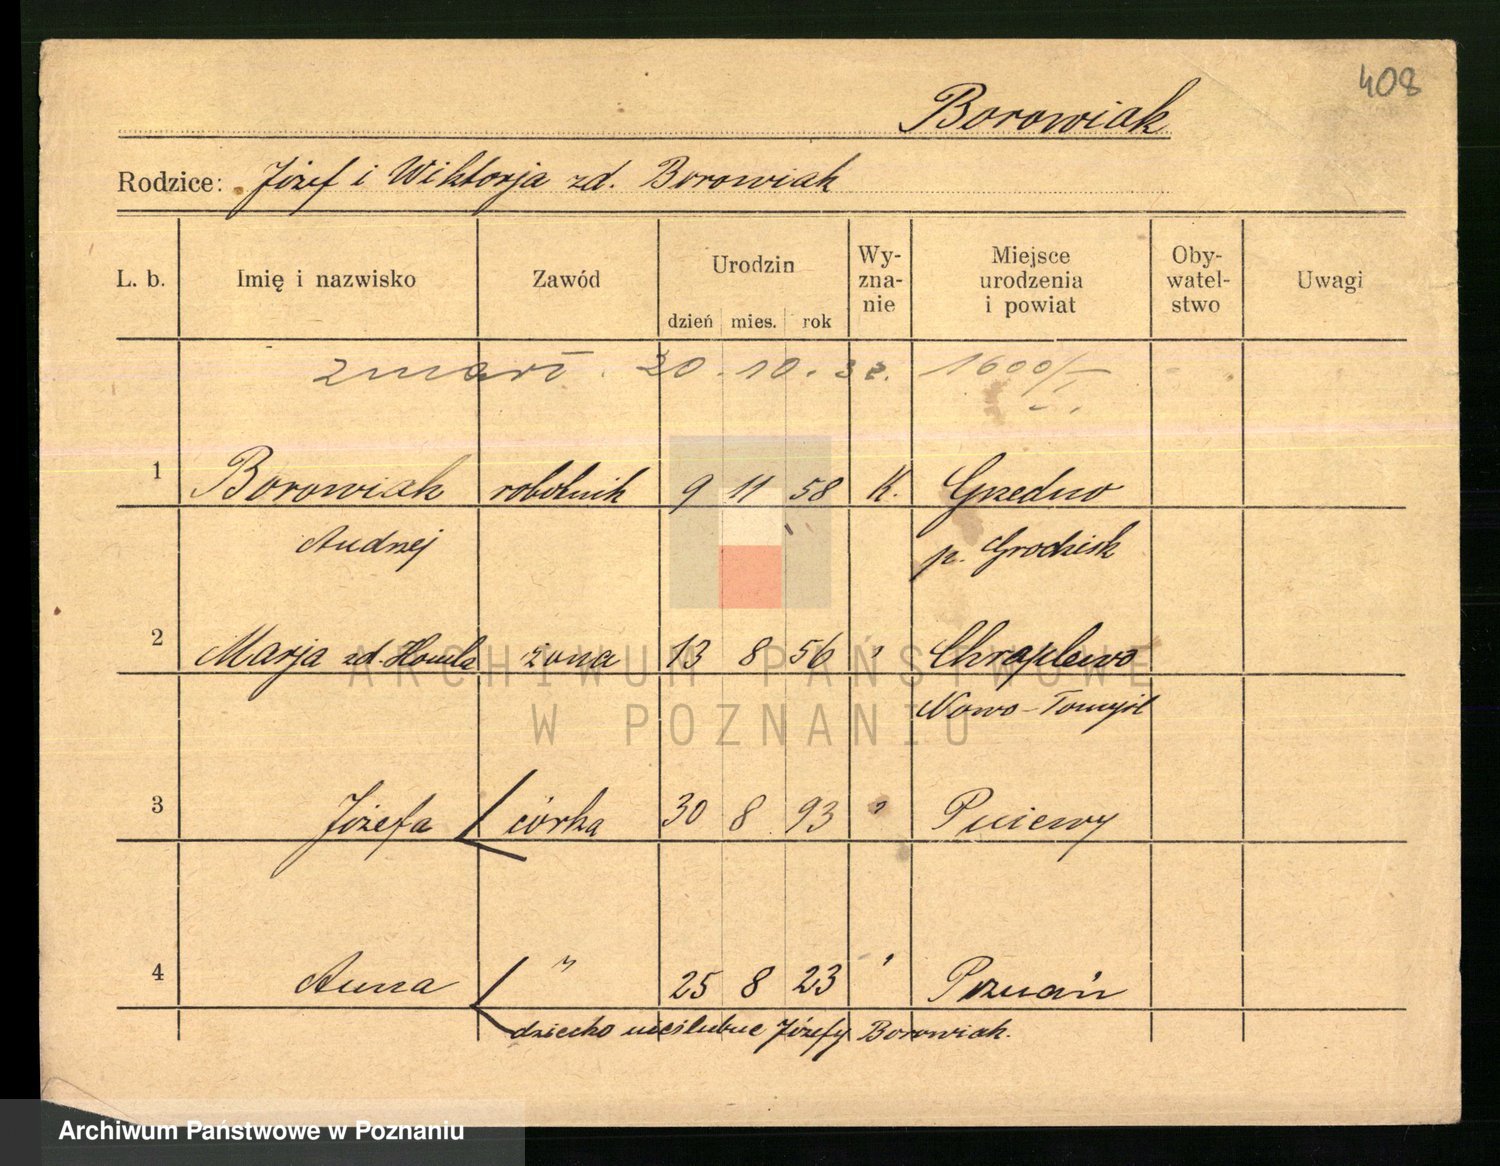 408
Borowiak
Rodzice: Józef i Wiktorja zd. Borowiak
L. b. Imię i nazwisko Zawód Urodzin dzień mies. rok Wy-zna-nie Miejsce urodzenia i powiat Oby-watel-stwo Uwagi
zmarł. 20. 10. 32. 1600/I
1 Borowiak robotnik 9 11 58 K. Grzedno
Andrzej p. Grodzisk
2 Marja zd. żona 13 8 56 " Chraplewo
ARCHIWUM PAŃSTWOWE
Nowo-Tomyśl
W POZNANIU
3 Józefa córka 30 8 93 " Pniewy
4 Anna " 25 8 23 " Poznań
dziecko nieślubne Józefy Borowiak.
Archiwum Państwowe w Poznaniu